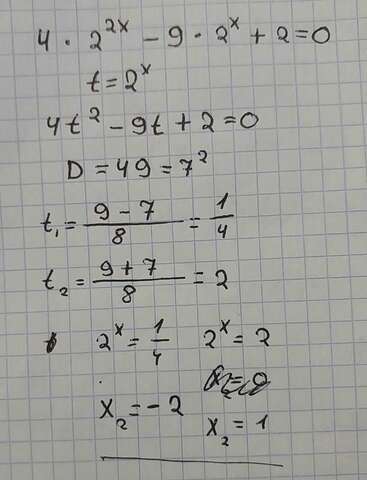 4 · 2^{2x} - 9 · 2^x + 2 = 0
t = 2^x
4t^2 - 9t + 2 = 0
D = 49 = 7^2
t_1 = \frac{9 - 7}{8} = \frac{1}{4}
t_2 = \frac{9 + 7}{8} = 2
2^x = \frac{1}{4} 2^x = 2
x_2 = -2
x_2 = 1